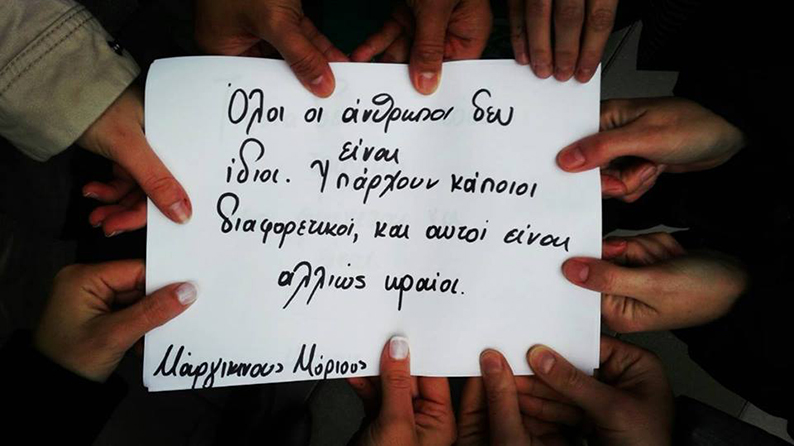 Όλοι οι άνθρωποι δεν
είναι
ίδιοι. Υπάρχουν κάποιοι
διαφορετικοί, και αυτοί είναι
αλλιώς ωραίοι.
Μάργκινους Μάριους